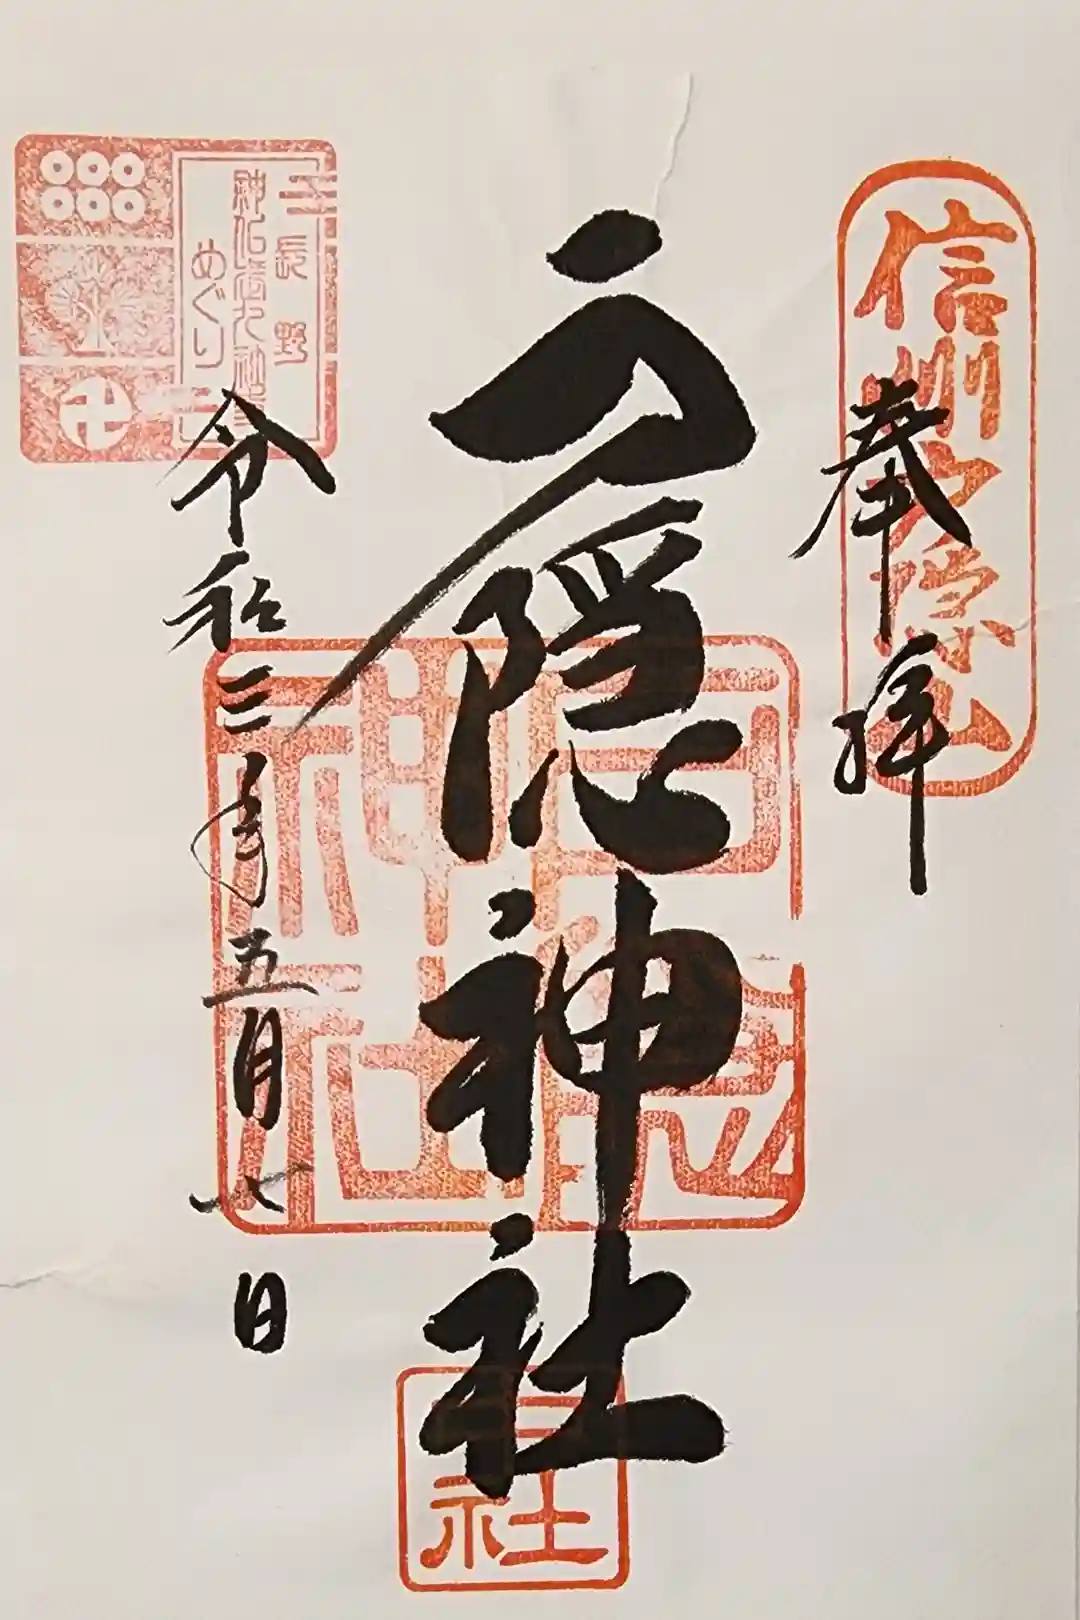 奉拝
信州戸隠山
戸隠神社
戸隠神社
令和三年五月七日
長野
めぐり